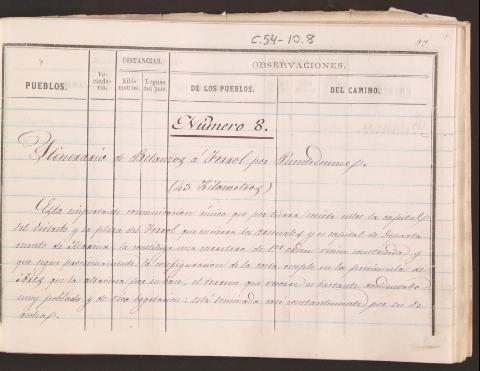 C.54-10.8
93.
DISTANCIAS.
OBSERVACIONES.
PUEBLOS.
Ve-
cinda-
rio.
Kiló-
metros.
Leguas
del pais.
DE LOS PUEBLOS.
DEL CAMINO.
Número 8.
Itinerario de Betanzos á Ferrol por Puendeume.
(43 Kilometros)
Esta importante comunicacion única que por tierra existe entre la capital
del distrito y la plaza del Ferrol que encierra los arsenales y es capital de Departa-
mento de Marina, la constituye una carretera de 1er orden recien construida y
que sigue proximamente la configuracion de la costa escepto en la peninsula de
Ares que la atraviesa por su base, el terreno que recorre es bastante accidentado
muy poblado y de rica vegetacion: está dominada casi constantemente por su de-
recha.